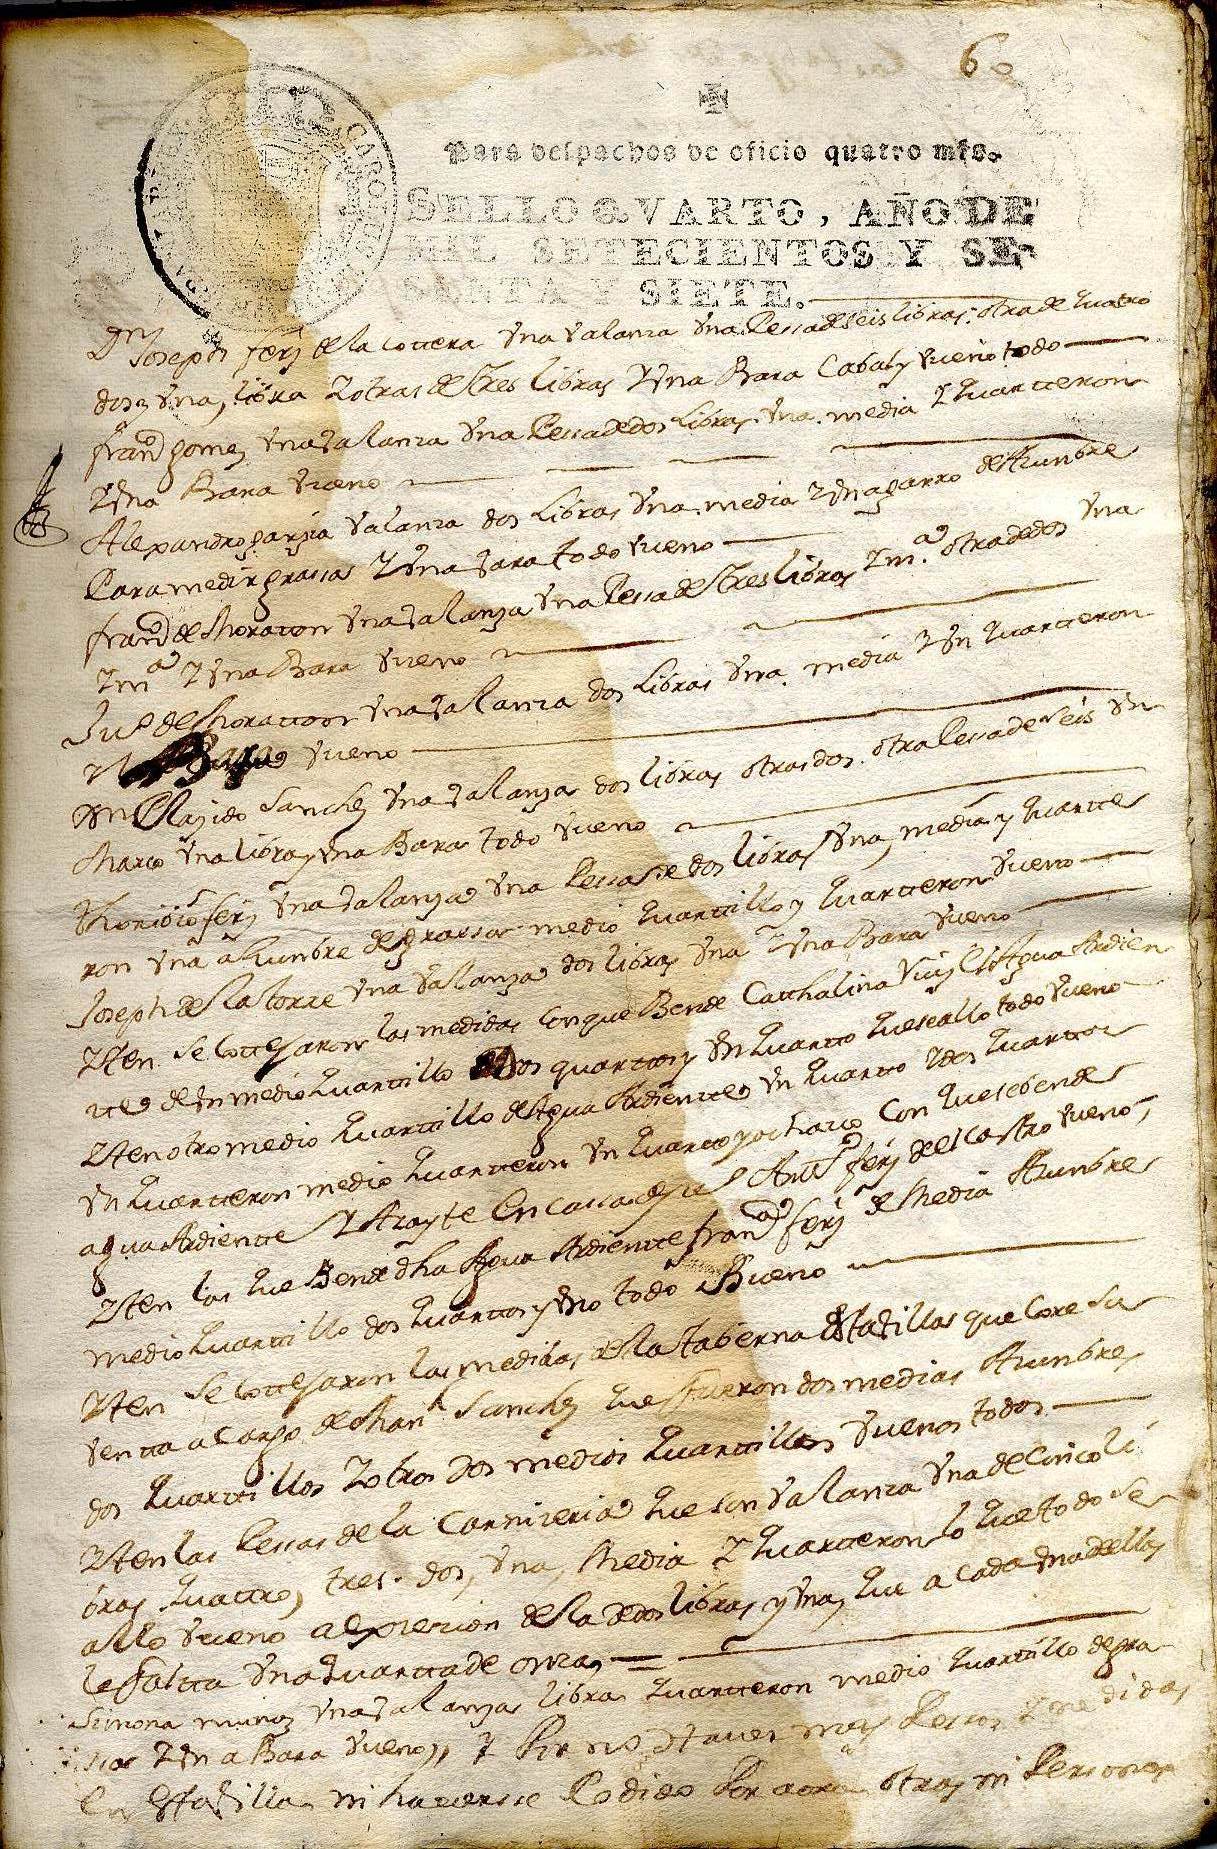 60
Para despachos de oficio quatro mrs.
SELLO QVARTO, AÑO DE
MIL SETECIENTOS Y SE-
SENTA Y SIETE.
Dn Joseph ferz de la cottera Vna Valanza Vna Pessa de seis libras, otra de quatro
dos, y Vna, libra Y otras de Tres libras Y Vna Bara Cabal y Vueno todo
franco gomez Vna Valanza Vna Pessa de dos Libras, Vna, media Y quartteron
Y Vna Bara Vueno
Alexandro garzia Valanza dos Libras Vna, media Y Vna garro de Azunbre
Para medir grassas Y Vna Vara todo Vueno
franco de Moratton Vna Valanza Vna Pessa de Tres libras Y ma otra de dos Vna
Y ma Y Vna Bara Vueno
de Morattoon Vna Valanza dos Libras Vna, media Y Vn quartteron
Bara Vueno
Dn Plazido Sanchez Vna Valanza dos libras otras dos, otra Pessa de seis Vn
Marco Vna libra, Vna Bara todo Vueno
Thoribio ferz Vna Valanza Vna Pessa de dos libras Vna, media, y quartte
ron Vna aZunbre de grassa medio quarttillo y quartteron Vueno
Joseph de la torre Vna Valanza dos libras Vna Y Vna Bara Vueno
Yten se cottejaron las medidas con que Bende Catthalina Ruiz el Agua Ardien
tte de Vn medio quarttillo dos quarttos y Vn quartto que se allo todo Vueno
Yten otro medio quarttillo de Agua Ardientte Vn quartto Y dos quarttos
Vn quartteron medio quartteron Vn quartto y ochavo Con que se bende
agua Ardientte Y Azeyte En Cassa de Antto ferz del Castro Vueno,
Yten las que Bende dha Agua Ardientte franca ferz de Media Azunbre
medio quarttillo dos quarttos y Vno todo Bueno
Yten se cottejaron las medidas de la taberna Estadillas que Core su
Ventta a Cargo de Manl Sanchez que fueron dos medias Azunbres
dos quarttillos Y otros Dos medios quarttillos Vuenos todos
Yten las Pessas de la Carnizeria que son Valanza Vna de Cinco li
bras, quattro, tres, dos, Vna, Media Y quartteron lo que todo se
allo Vueno a exprecion de la de dos libras, y Vna, que a Cada Vna de ellas
le faltta Vna quartta de onza,
Simona muñoz Vna Valanza libra quartteron medio quarttillo de gra
ssas Y Vna Bara Vueno, Y Por no Haver mas Pessos Y medidas
En Estadilla ni haverse Podido Por aora otras ni Personas